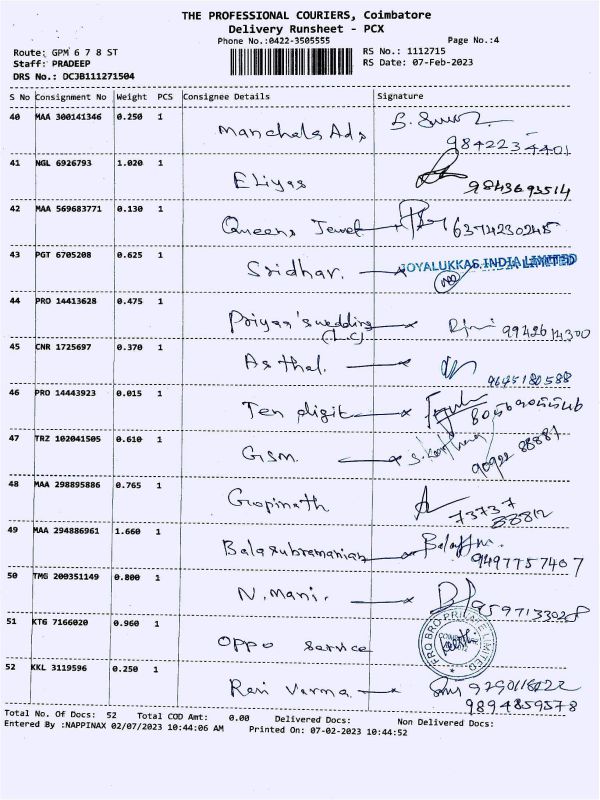 THE PROFESSIONAL COURIERS, Coimbatore
Delivery Runsheet - PCX
Phone No.:0422-3505555 Page No.:4
Route: GPM 6 7 8 ST RS No.: 1112715
Staff: PRADEEP RS Date: 07-Feb-2023
DRS No.: DCJB111271504
S No Consignment No Weight PCS Consignee Details Signature
40 MAA 300141346 0.250 1 Manchels Ads
41 NGL 6926793 1.020 1 Eliyas 9843693514
42 MAA 569683771 0.130 1 Queens Jewel 6374230245
43 PGT 6705208 0.625 1 Sridhar. JOYALUKKAS INDIA LIMITED
44 PRO 14413628 0.475 1 Priyan's wedding 9942614300
(L.C)
45 CNR 1725697 0.370 1 As thal. 9645180588
46 PRO 14443923 0.015 1 Ten digit
47 TRZ 102041505 0.610 1 Gsm. 90922 88887
48 MAA 298895886 0.765 1 Gopinath 73737
88812
49 MAA 294886961 1.660 1 Balasubramanian 9497757407
50 TMG 200351149 0.800 1 N. Mani. 9597133028
51 KTG 7166020 0.960 1 Oppo service FRQ BRO PRIVATE LIMITED
52 KKL 3119596 0.250 1 Ravi Varma
9894859578
Total No. Of Docs: 52 Total COD Amt: 0.00 Delivered Docs: Non Delivered Docs:
Entered By :NAPPINAX 02/07/2023 10:44:06 AM Printed On: 07-02-2023 10:44:52